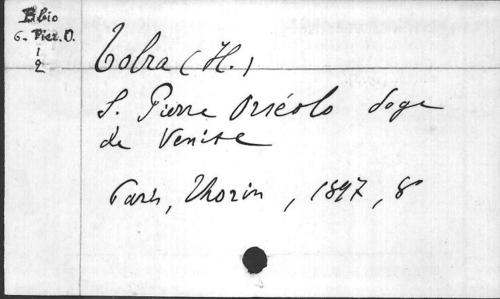 Bbio
6. Piet. O.
1
2
Tolra (H.)
S. Pierre Orséolo doge
de Venise
Paris, Thorin, 1897, 8°